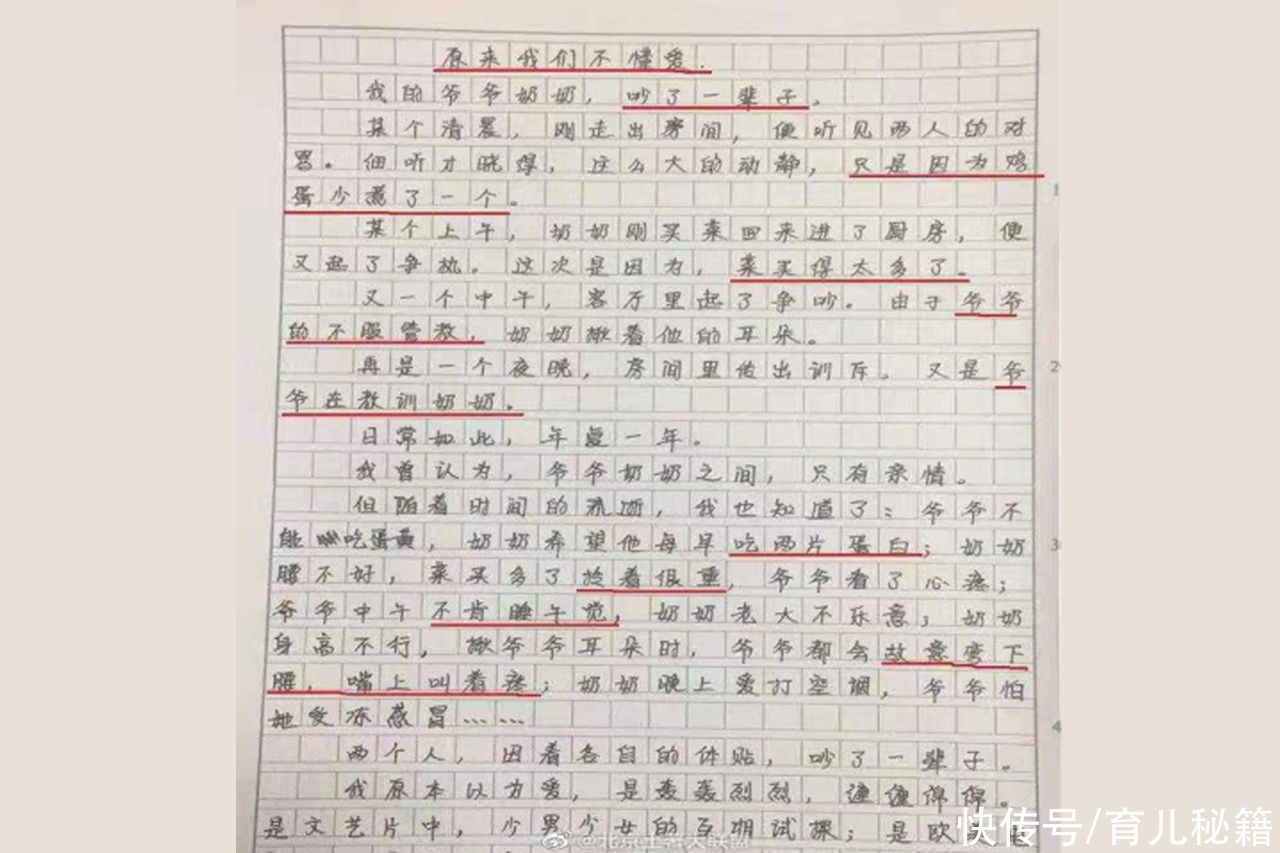 原来我们不懂爱.
我的爷爷奶奶，吵了一辈子。
某个清晨，刚走出房间，便听见两人的对
骂。细听才晓得，这么大的动静，只是因为鸡
蛋少煮了一个。
某个上午，奶奶刚买菜回来进了厨房，便
又起了争执。这次是因为，菜买得太多了。
又一个中午，客厅里起了争吵。由于爷爷
的不服管教，奶奶揪着他的耳朵。
再是一个夜晚，房间里传出训斥。又是爷
爷在教训奶奶。
日常如此，年复一年。
我曾认为，爷爷奶奶之间，只有亲情。
但随着时间的流逝，我也知道了：爷爷不
能吃蛋黄，奶奶希望他每早吃两片蛋白；奶奶
腰不好，菜买多了拎着很重，爷爷看了心疼；
爷爷中午不肯睡午觉，奶奶老大不乐意；奶奶
身高不行，揪爷爷耳朵时，爷爷都会故意弯下
腰，嘴上叫着疼；奶奶晚上爱打空调，爷爷怕
她受冻感冒……
两个人，因着各自的体贴，吵了一辈子。
我原本以为爱，是轰轰烈烈，缠缠绵绵。
是文艺片中，少男少女的互相试探；是欧
@北京土著大联盟
快传号/育儿秘籍
1
2
3
4